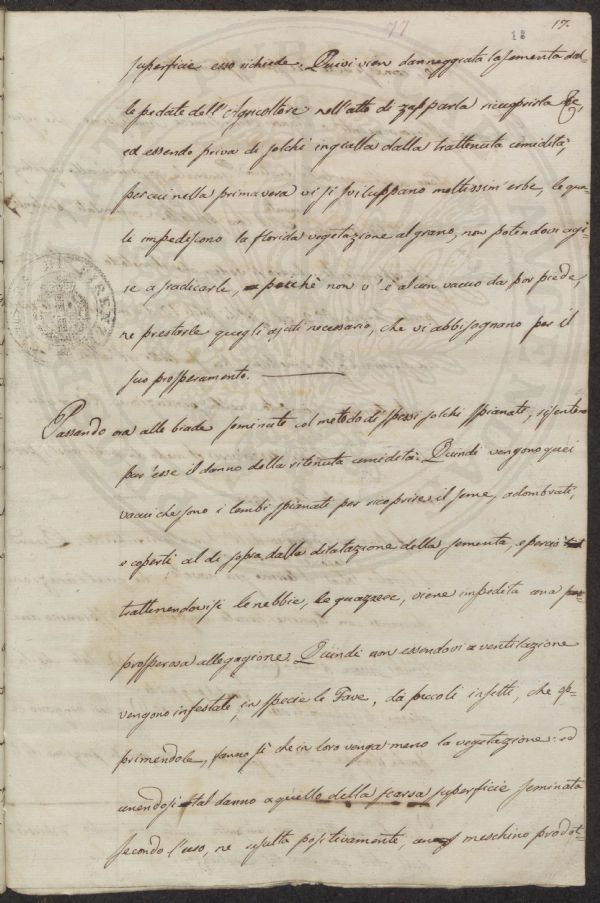 77
18
17.
superficie esso richiede. Quivi vien danneggiata la sementa dal-
le pedate dell'Agricoltore nell'atto di zapparla ricuoprirla &c,
ed essendo priva di solchi ingialla dalla trattenuta umidità,
per cui nella primavera vi si sviluppano moltissim'erbe, le qua-
li impediscono la florida vegetazione al grano, non potendovi agi-
re a sradicarle, perchè non v'è alcun vacuo da por piede,
ne prestarle quegli ajuti necessario, che vi abbisognano per il
suo prosperamento.
Passando ora alle biade seminate col metodo di spessi solchi spianati, risentono
pur'esse il danno della ritenuta umidità. Quindi vengono quei
vacui che sono i lembi spianati per ricoprire il seme, adombrati,
e coperti al di sopra dalla dilatazione della sementa, e perciò
trattenendovisi le nebbie, le guazze, viene impedita una
prosperosa allegagione. Quindi non essendovi ventilazione
vengono infestate, in specie le Fave, da piccoli insetti, che op-
primendole, fanno sì che in loro venga meno la vegetazione: ed
unendosi tal danno a quello della scarsa superficie seminata
secondo l'uso, ne risulta positivamente, un meschino prodot-